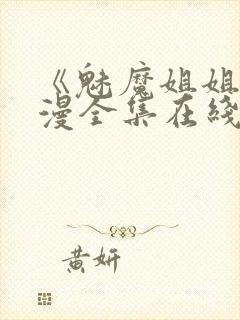 《魅魔姐姐
漫全集在綫
黄妍